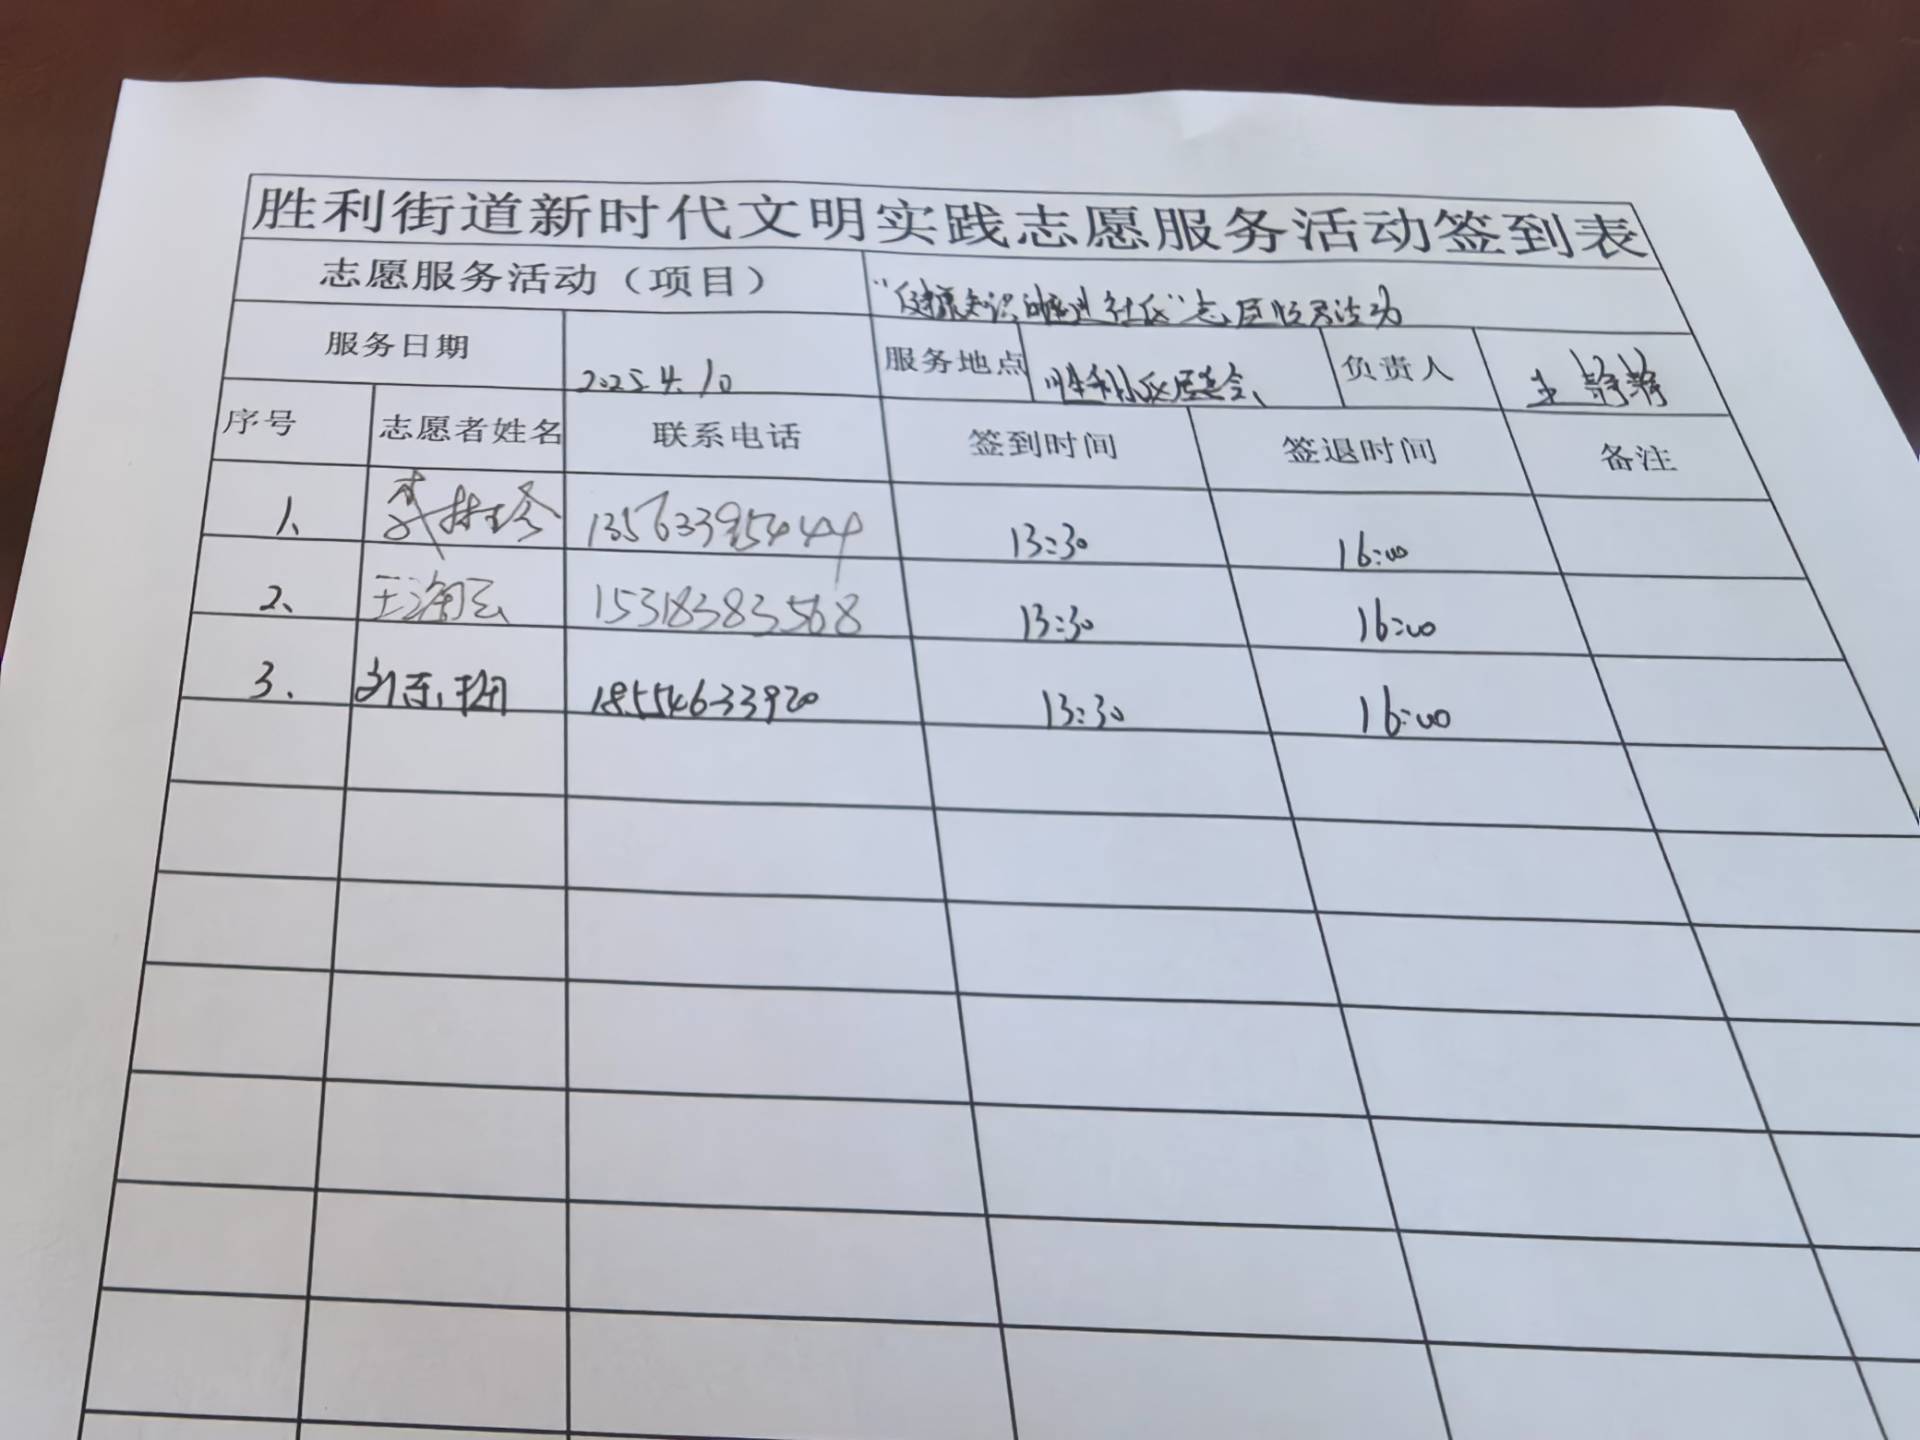 胜利街道新时代文明实践志愿服务活动签到表
志愿服务活动（项目） "健康知识 进社区"志愿服务活动
服务日期 2025.4.10 服务地点 胜利社区居委会 负责人 王静静
序号 志愿者姓名 联系电话 签到时间 签退时间 备注
1、 李 13563395444 13:30 16:00
2、 王海云 15318383568 13:30 16:00
3、 刘 18554633920 13:30 16:00